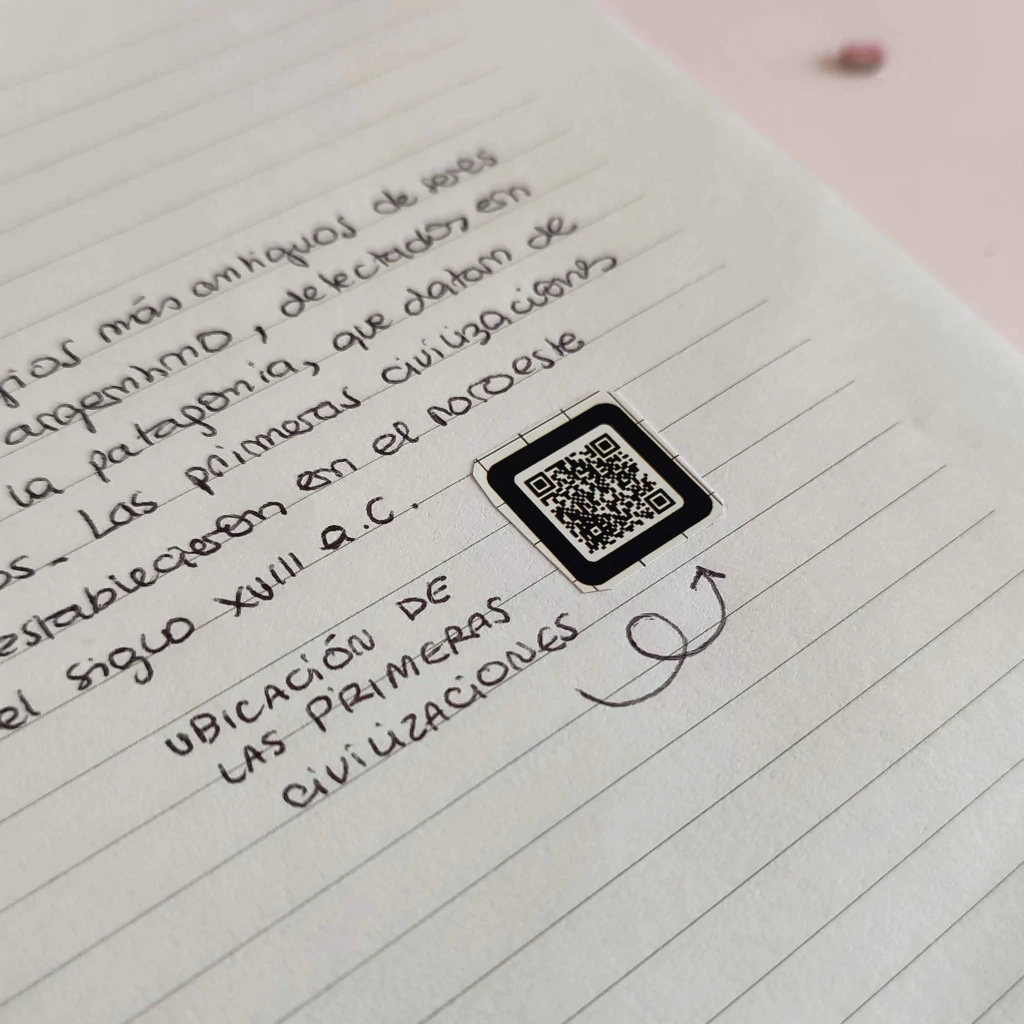 más antiguos de seres
argentino, detectados en
la patagonia, que datan de
os. Las primeras civilizaciones
establecieron en el noroeste
el siglo XVIII a.C.
UBICACIÓN DE
LAS PRIMERAS
CIVILIZACIONES